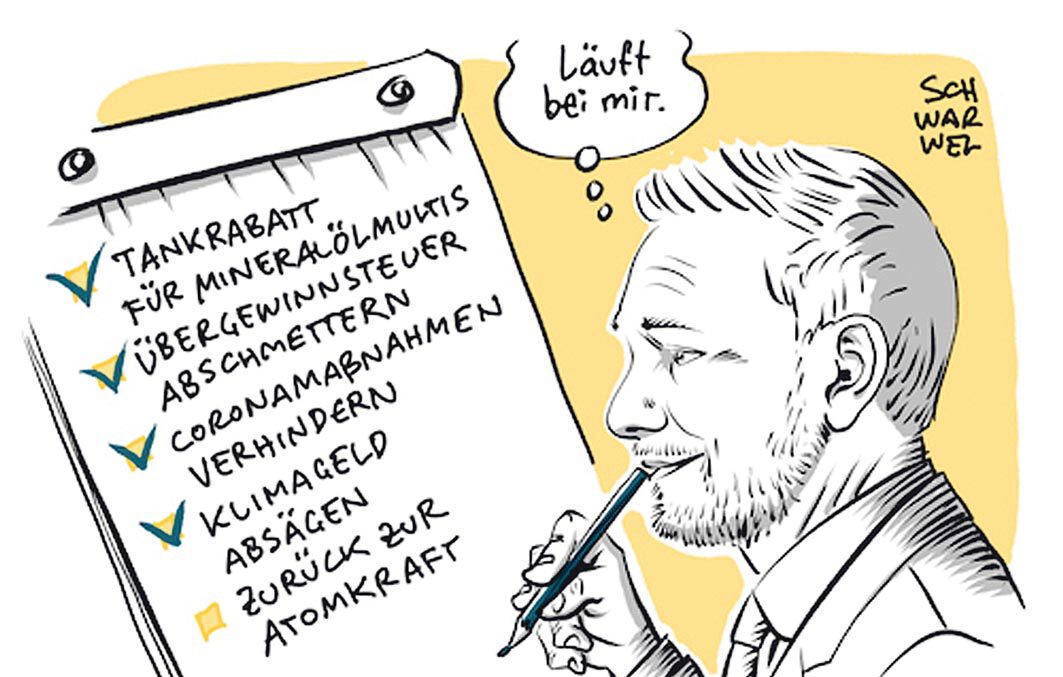 Läuft
bei mir.
SCH
WAR
WEL
TANKRABATT
FÜR MINERALÖLMULTIS
ÜBERGEWINNSTEUER
ABSCHMETTERN
CORONAMAßNAHMEN
VERHINDERN
KLIMAGELD
ABSÄGEN
ZURÜCK ZUR
ATOMKRAFT